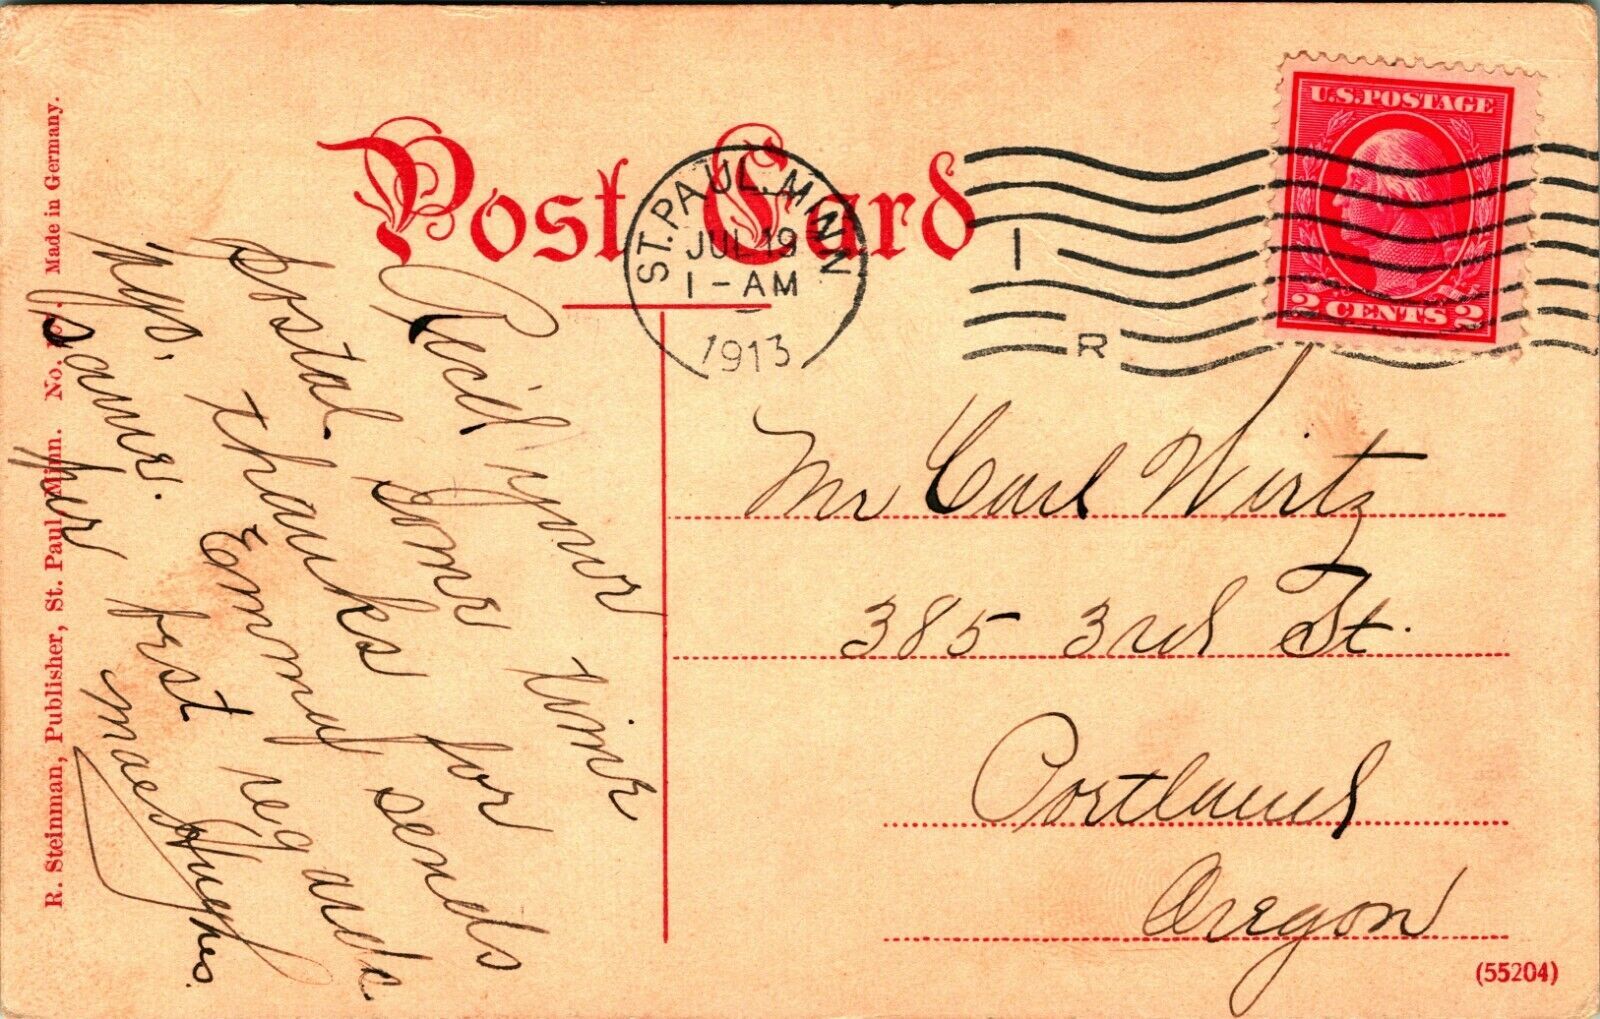 Post Card
ST. PAUL, MINN
JUL 19
1 - AM
1913
I
R
U.S. POSTAGE
2 CENTS 2
Mr Carl Wirtz
385 3rd St.
Portland
Oregon
(55204)
Rec'd your
postal some time
ago. thanks for
same. Emmy sends
her best regards
Mae Hughes.
R. Steinman, Publisher, St. Paul, Minn. No. Made in Germany.